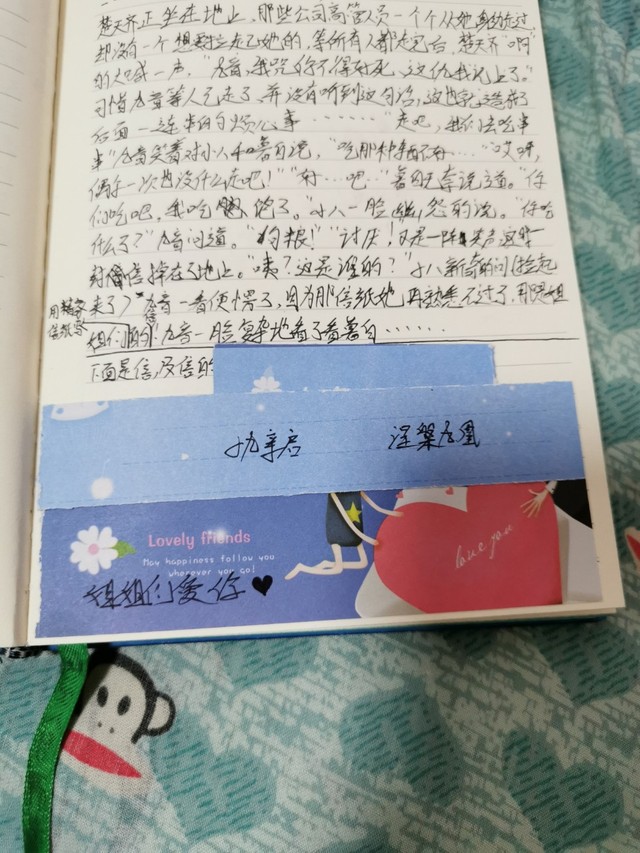 楚天齐正坐在地上，那些公司高管人员一个个从她身边走过
却没有一个想对立走了她的，等所有人都走完后，楚天齐"啊"
的大喊一声，"九音，我咒你不得好死，这仇我记上了。"
可惜九音等人已走了，并没有听到这句话，这也就造就了
后面一连串的烦心事………"走吧，我们去吃串
串"九音笑着对小八和暮白说，"吃那种东西不好…""哎呀，
偶尔一次也没什么走吧！""好…吧"暮白无奈说道。"你
们吃吧，我吃饱了。"小八一脸幽怨的说。"你吃
什么了？"九音问道。"狗粮！""讨厌！又是一阵笑声这时一
封信掉在了地上。"咦？这是谁的？"小八新奇的问（捡起
来了）九音一看便愣了，因为那信纸她再熟悉不过了，那是姐
姐们的！九音一脸复杂地看了看暮白……
信纸写
下面是信，及信的
小九亲启 涅槃九凰
Lovely friends
May happiness follow you
wherever you go!
love you
姐姐们爱你♥